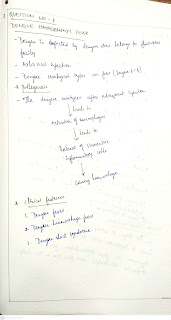 QUESTION NO - 8
DENGUE HAEMORRHAGIC FEVER
- Dengue is infected by dengue virus belong to flavivirus
family
- Arbo viral infection
- Dengue serotypes types are four (Dengue 1-4)
* Pathogenesis
- The dengue serotypes after subsequent infection
leads to
Activation of macrophages
leads to
Release of
Inflammatory cells
haemorrhage
* Clinical features
1. Dengue fever
2. Dengue haemorrhagic fever
3. Dengue shock syndrome